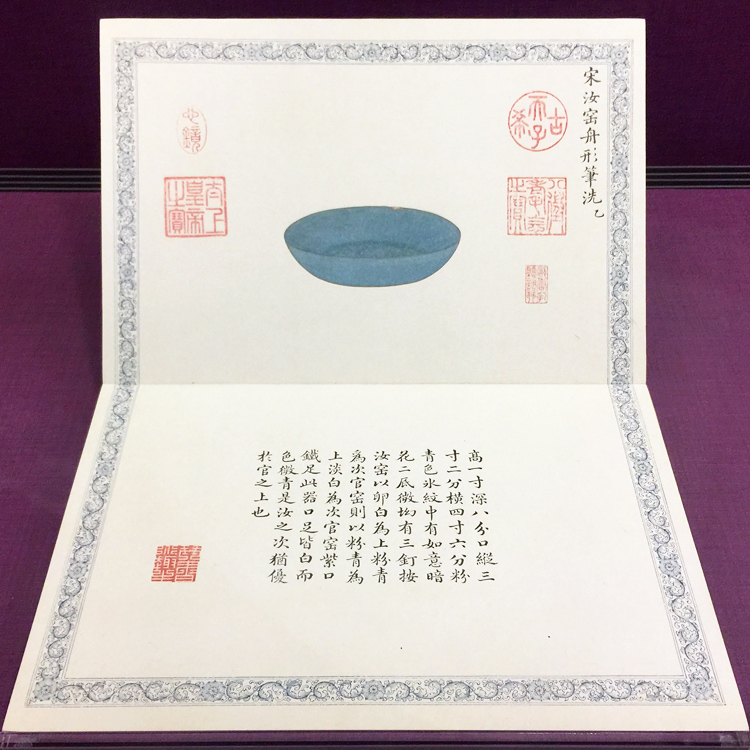 宋汝窑舟形筆洗 乙
古希天子
八徵耄念之寶
太上皇帝之寶
高一寸深八分口縱三
寸二分橫四寸六分粉
青色氷紋中有如意暗
花二底微坳有三釘按
汝窑以卵白為上粉青
為次官窑則以粉青為
上淡白為次官窑紫口
鐵足此器口足皆白而
色微青是汝之次猶優
於官之上也